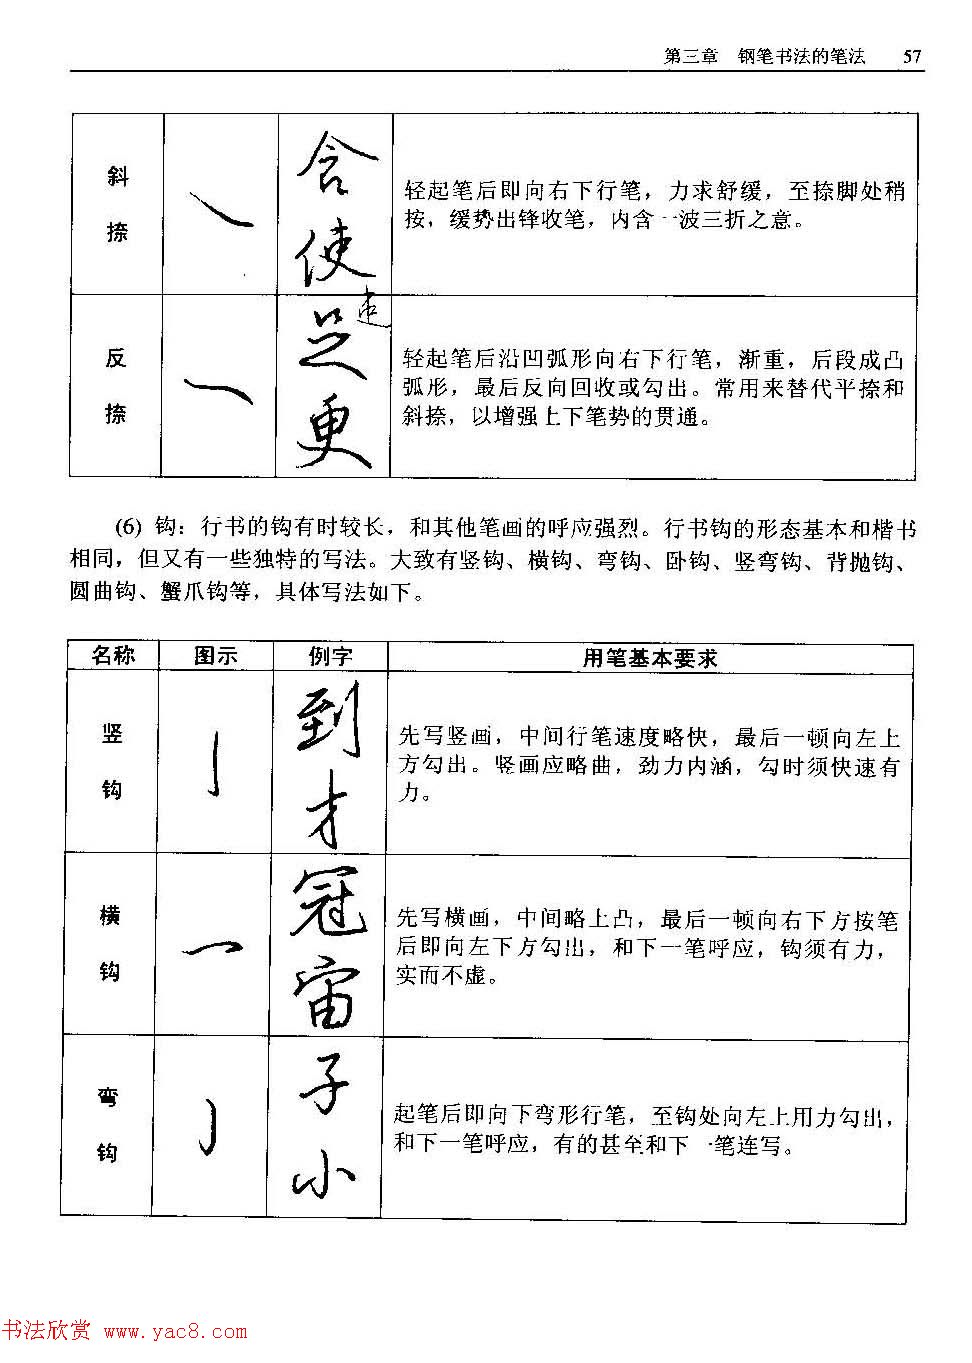 第三章 钢笔书法的笔法 57
斜捺
含
使
轻起笔后即向右下行笔，力求舒缓，至捺脚处稍
按，缓势出锋收笔，内含一波三折之意。
反捺
足
更
轻起笔后沿凹弧形向右下行笔，渐重，后段成凸
弧形，最后反向回收或勾出。常用来替代平捺和
斜捺，以增强上下笔势的贯通。
(6) 钩：行书的钩有时较长，和其他笔画的呼应强烈。行书钩的形态基本和楷书
相同，但又有一些独特的写法。大致有竖钩、横钩、弯钩、卧钩、竖弯钩、背抛钩、
圆曲钩、蟹爪钩等，具体写法如下。
名称 图示 例字 用笔基本要求
竖钩
到
才
先写竖画，中间行笔速度略快，最后一顿向左上
方勾出。竖画应略曲，劲力内涵，勾时须快速有
力。
横钩
冠
宙
先写横画，中间略上凸，最后一顿向右下方按笔
后即向左下方勾出，和下一笔呼应，钩须有力，
实而不虚。
弯钩
子
小
起笔后即向下弯形行笔，至钩处向左上用力勾出，
和下一笔呼应，有的甚至和下一笔连写。
书法欣赏 www.yac8.com